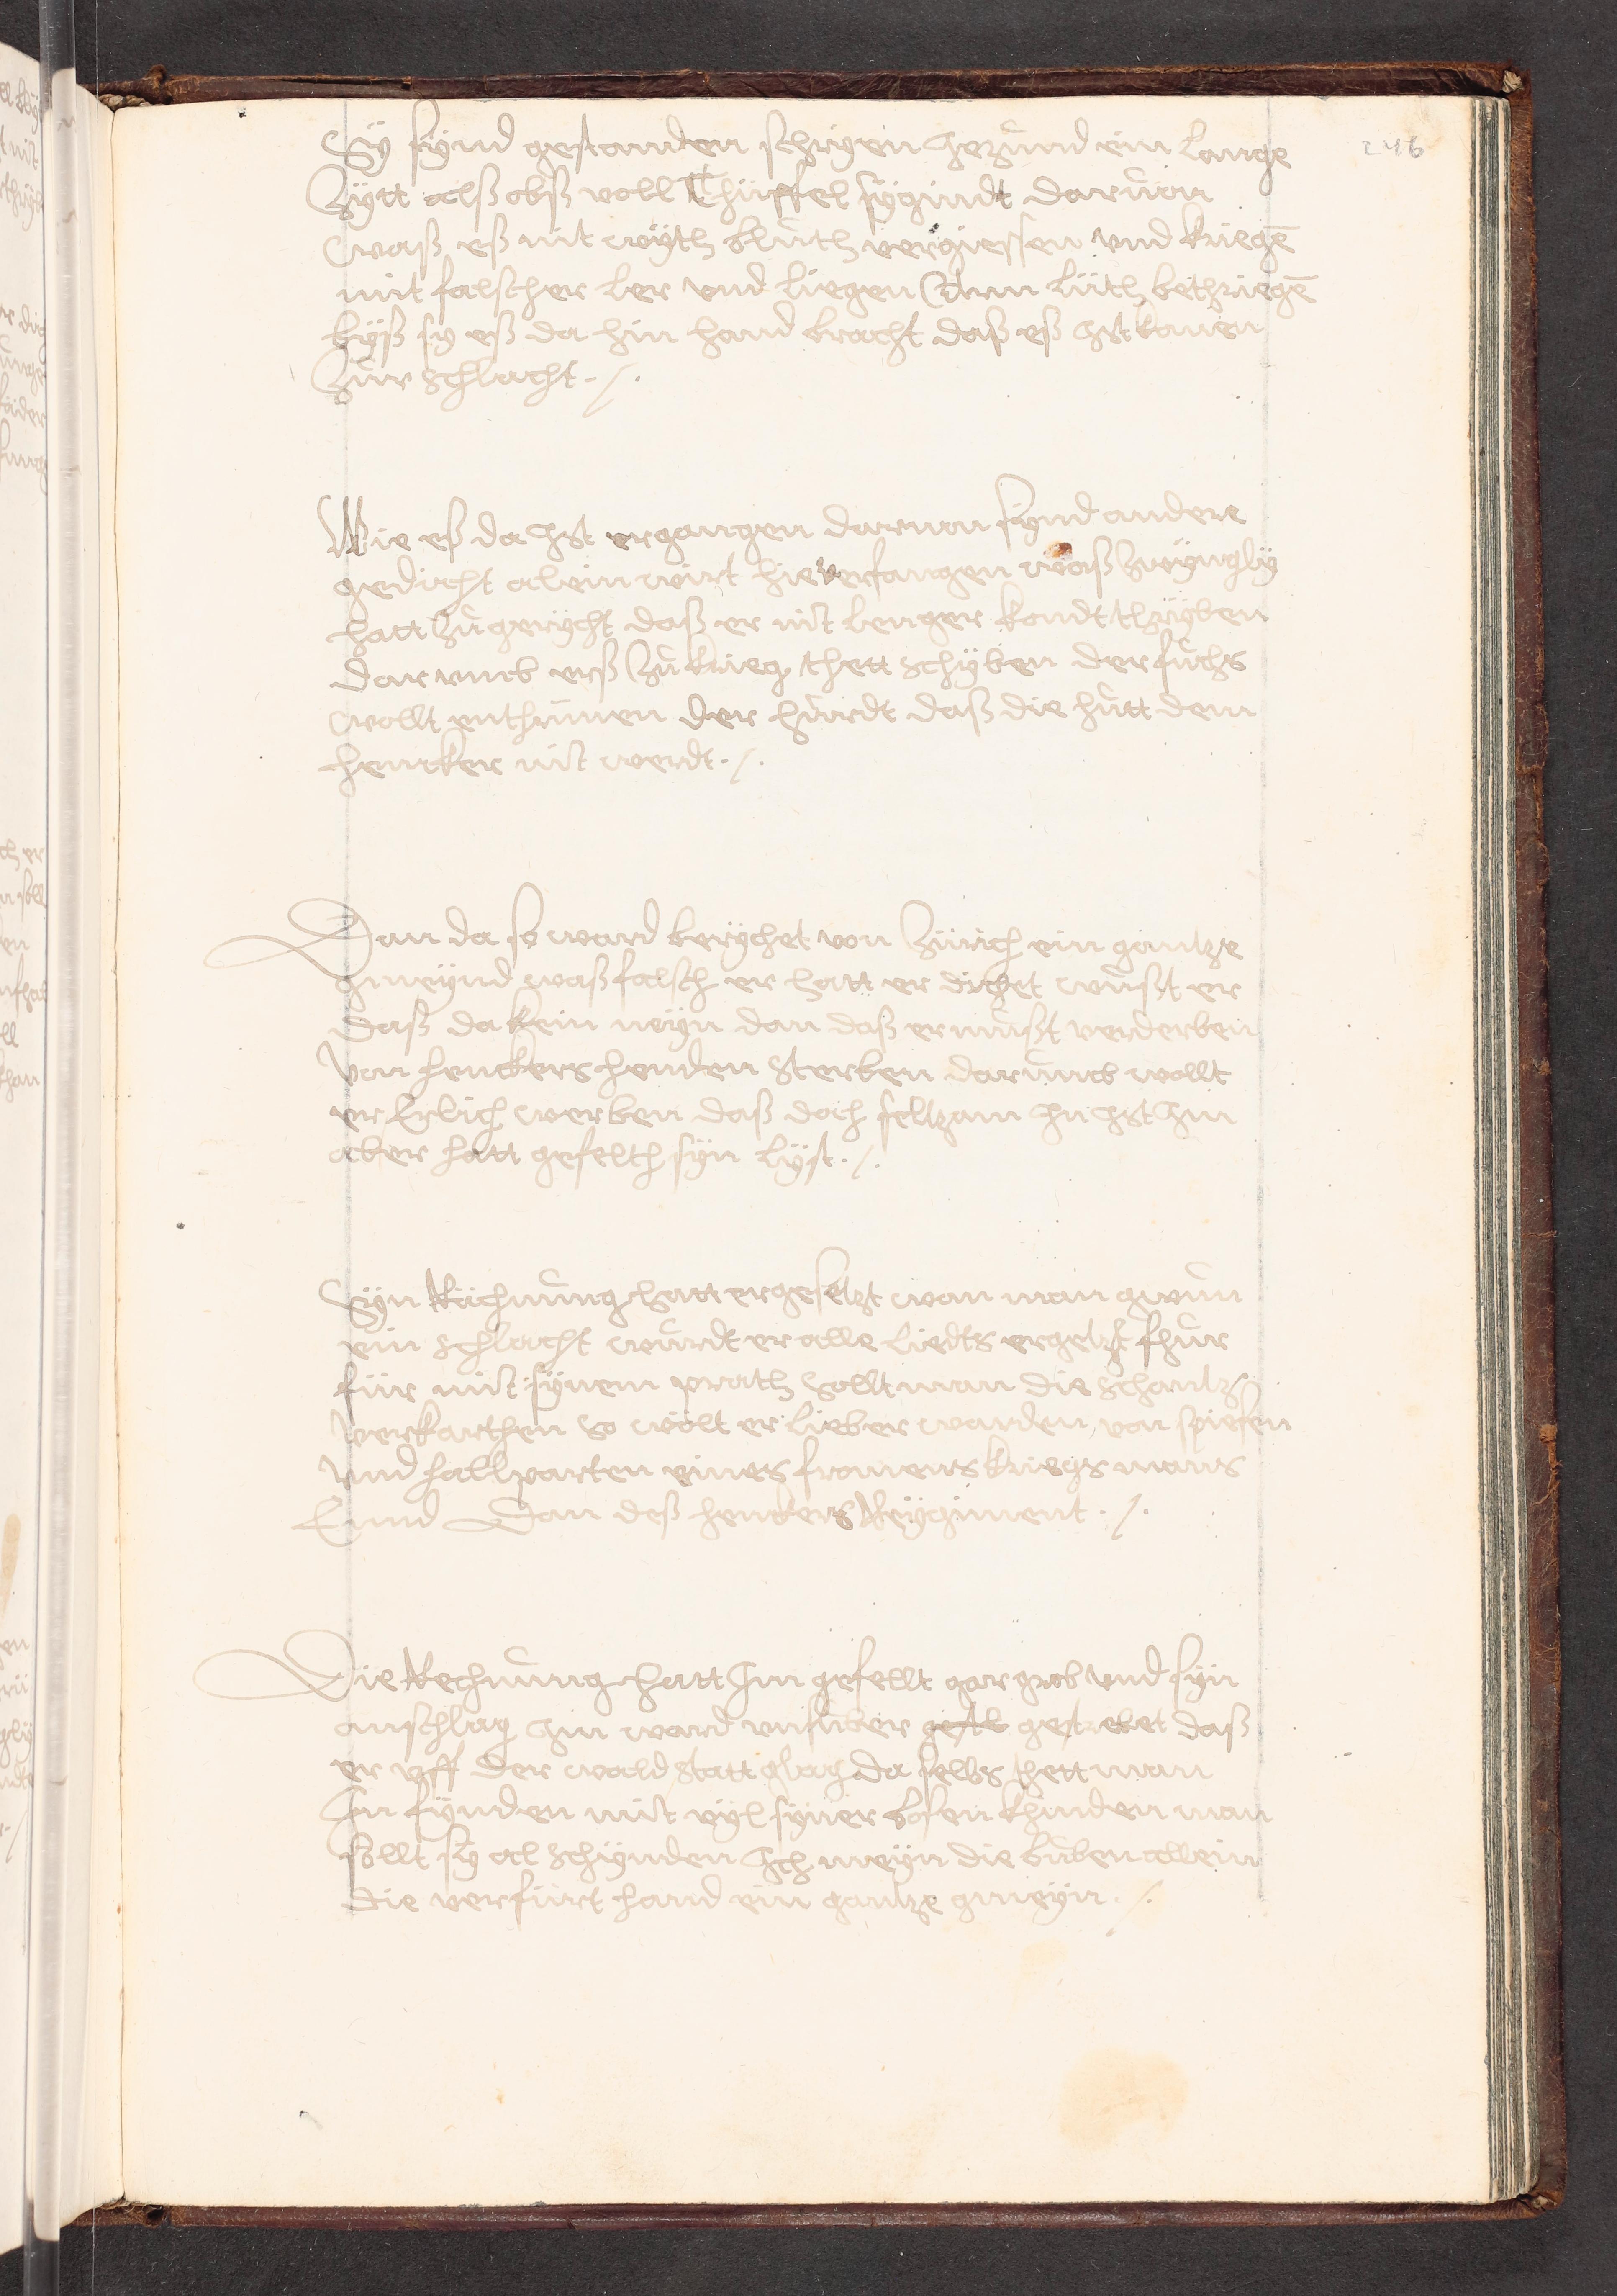 246
Sÿ sÿnd gestanden schrÿen Jezund ein lange
Zÿtt alß obß voll Thüffel sÿgindt daruon
waß eß nit wÿth blůth vergiessen vnd kriegē
mit falscher ler vnd liegen Arm lüth bethriegē
byß sÿ eß da hin hand bracht daß eß Jst komen
Zůr schlacht ./.
Wie eß da Jst ergangen daruon sÿnd andere
gedicht alein wirt hie verfangen waß Zwÿnglÿ
hatt Zůgerÿcht daß er nit lenger kondt thrÿben
dar vmb erß Zů krieg thett schÿben der fuchs
wollt enthrinen der hůrdt daß die hutt dem
hencker nit werdt ./.
Dan da so ward berÿchet von Zürich ein gantze
gmeÿnd waß falsch er hatt er dichet wůßt er
daß da kein neÿn dan daß er můßt verderben
von henckers henden sterben darůmb wollt
er Erlich werben daß doch seltzam Jn Jst Jm
aber hatt gefelth sÿn lÿst ./.
Sÿn Rächnůng hatt er gesetzt wan man gwůn
ein schlacht wůrdt er alle liedts ergetzt fhůr
für mit sÿnem prath sollt man die schantz
verkarthen so wölt er lieber warden von spiesen
vnd hallparten eines fromens kriegs mans
Ennd Dan deß henckers Reÿgiment ./.
Die Rechnůng hatt Jm gefellt gar grob vnd sÿn
anschlag Jm ward vnsuber gestrelet daß
er vff der wald statt glag da selbs thett man
Jn fÿnden mit vÿl sÿner bösen khinden man
sollt sÿ al schÿnden Jch meÿn die bůben allein
die verfürt hand ein gantze gmeÿn ./.